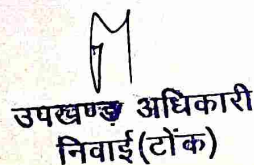 उपखण्ड अधिकारी
निवाई(टोंक)